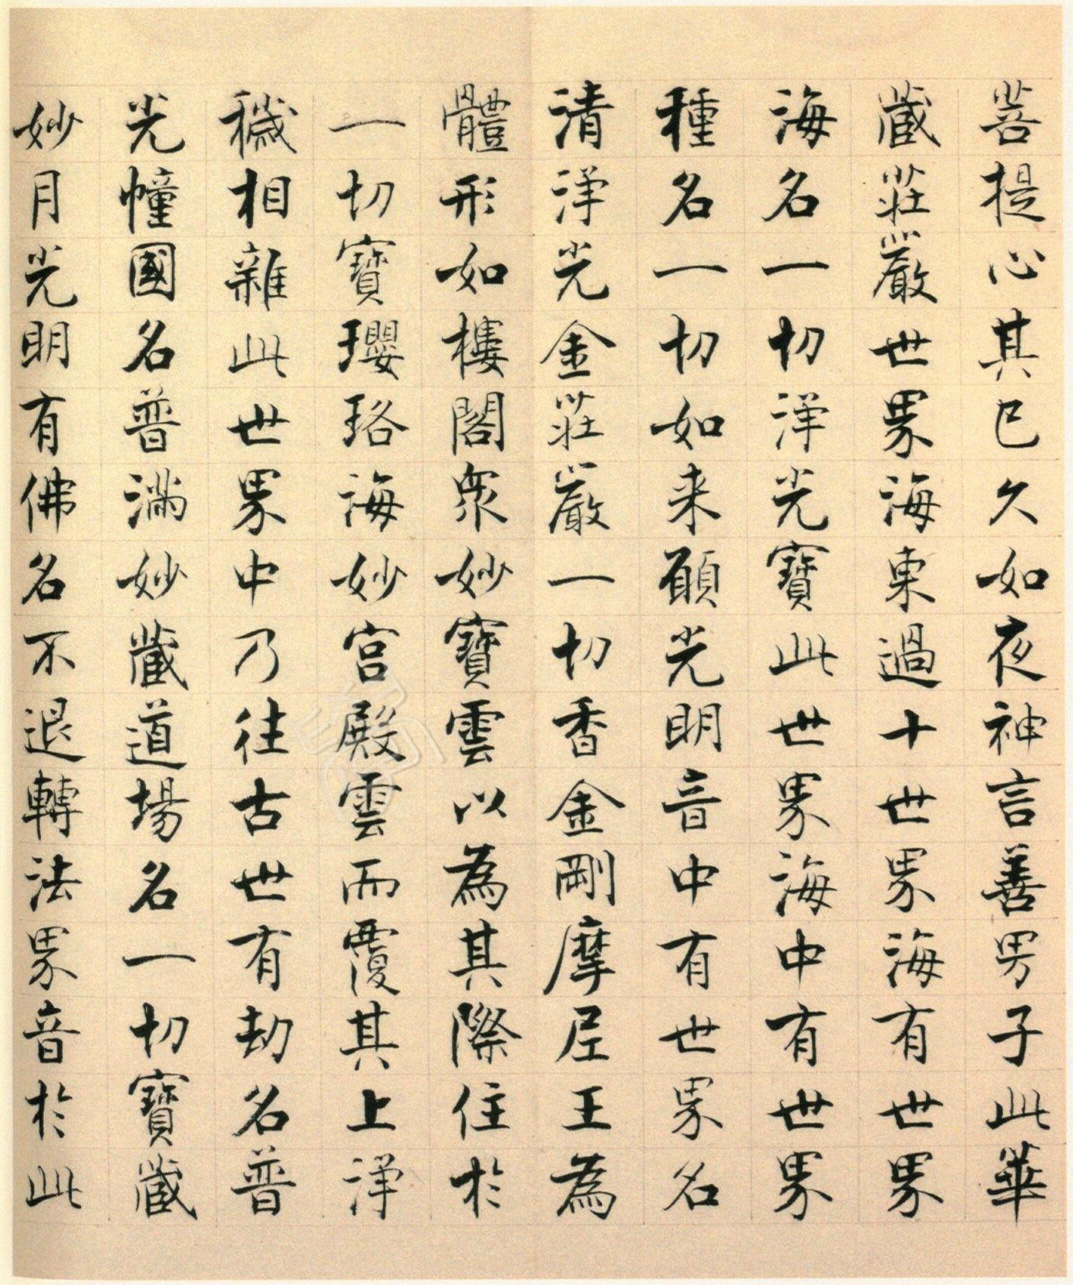 菩提心其已久如夜神言善男子此華
藏莊嚴世界海東過十世界海有世界
海名一切淨光寶此世界海中有世界
種名一切如来願光明音中有世界名
清淨光金莊嚴一切香金剛摩尼王為
體形如樓閣衆妙寶雲以為其際住於
一切寶瓔珞海妙宮殿雲而覆其上淨
穢相雜此世界中乃往古世有劫名普
光幢國名普滿妙藏道場名一切寶藏
妙月光明有佛名不退轉法界音於此